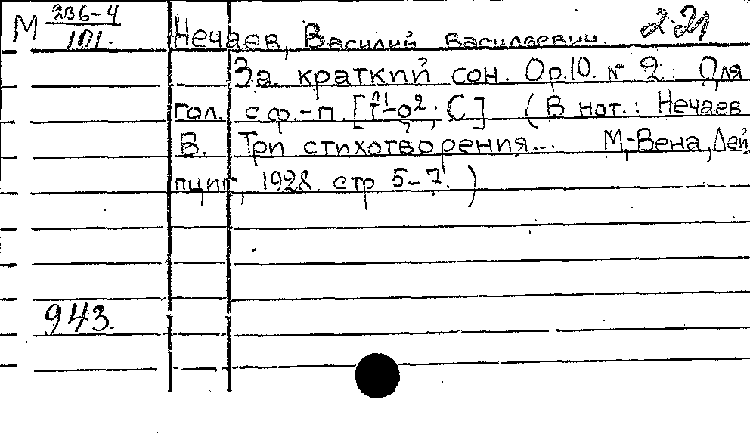 М 236-4 / 101
Нечаев, Василий Васильевич. 2.21
За краткий сон. Op.10. № 2. Для
гол. с ф.-п. [f¹-g²; C] (В нот.: Нечаев
В. Три стихотворения... М,-Вена, Лей
пциг, 1928. стр 5-7.)
943.